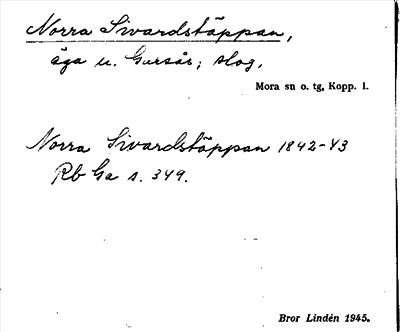 Norra Sivardstäppan,
äga u. Gursås; skog.
Mora sn o. tg, Kopp. l.
Norra Sivardstäppan 1842-43
Rb Ga s. 349.
Bror Lindén 1945.